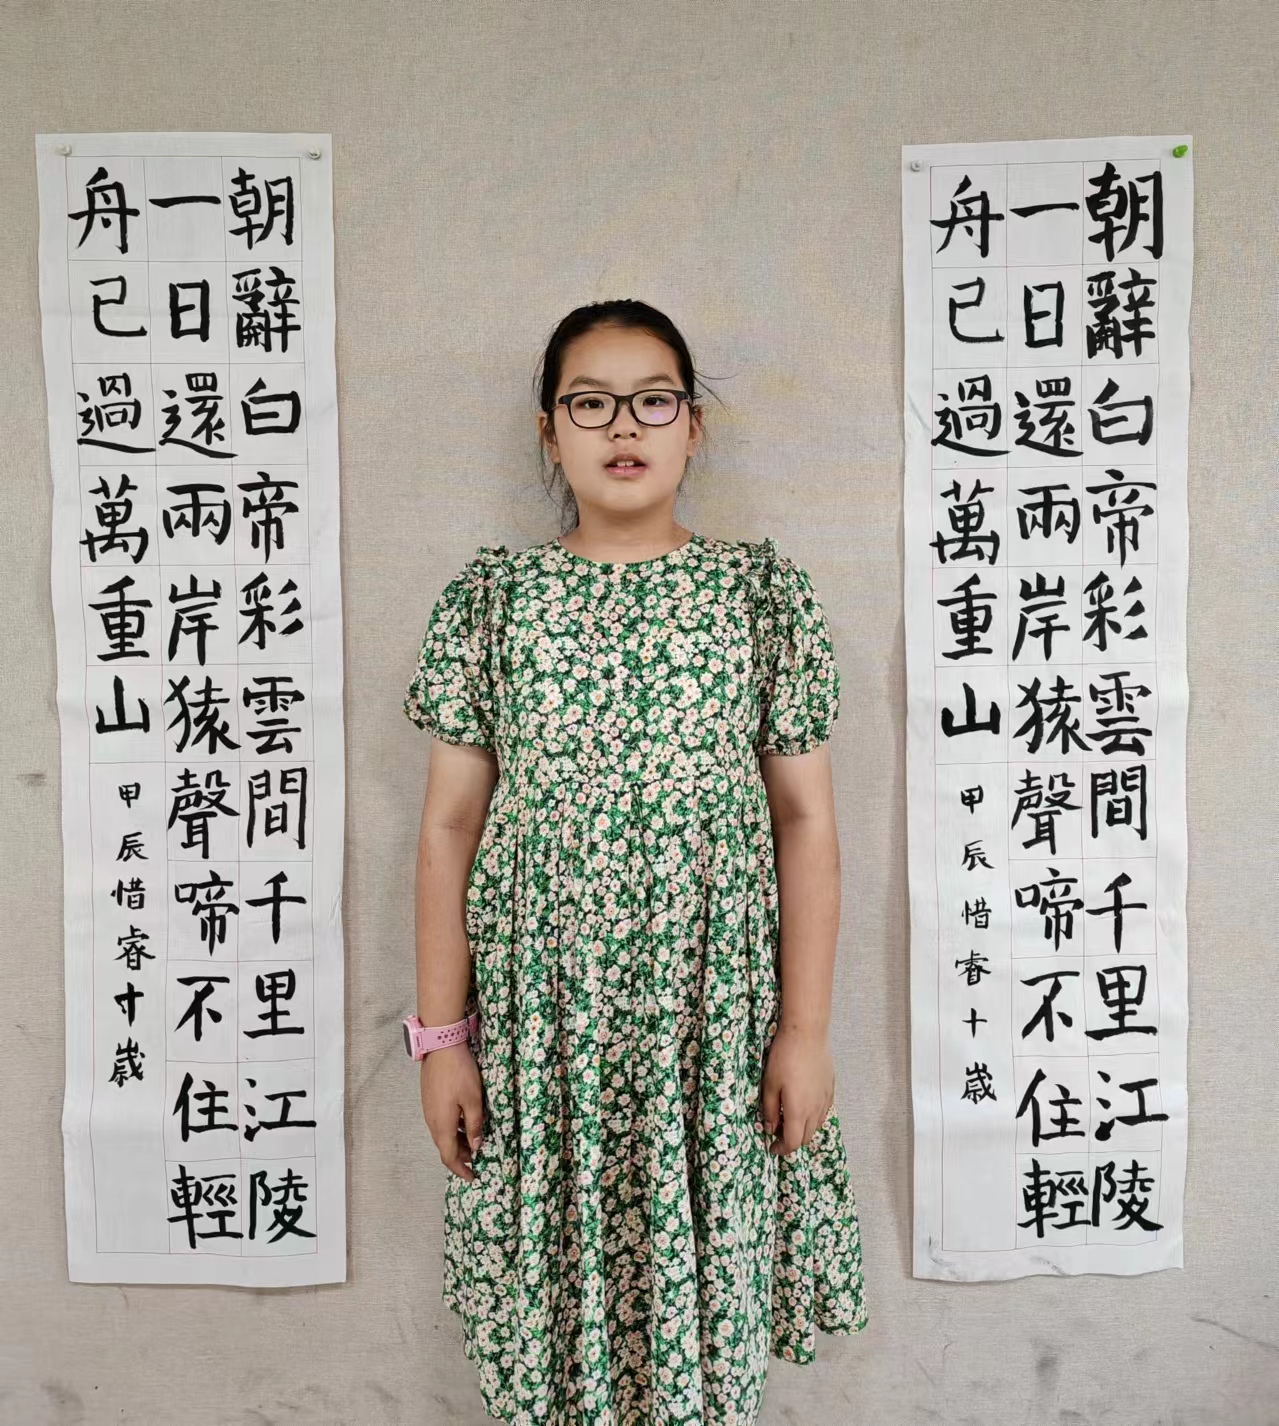 朝辭白帝彩雲間千里江陵
一日還兩岸猿聲啼不住輕
舟已過萬重山
甲辰惜睿寸歲
朝辭白帝彩雲間千里江陵
一日還兩岸猿聲啼不住輕
舟已過萬重山
甲辰惜睿十歲